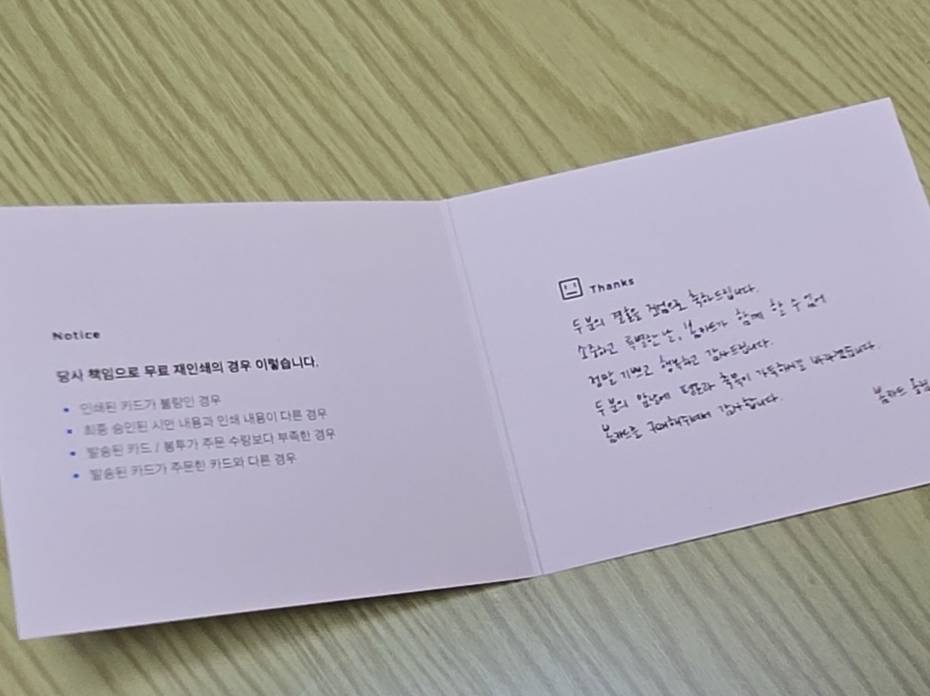 Notice
당사 책임으로 무료 재인쇄의 경우 이렇습니다.
• 인쇄된 카드가 불량인 경우
• 최종 승인된 시안 내용과 인쇄 내용이 다른 경우
• 발송된 카드 / 봉투가 주문 수량보다 부족한 경우
• 발송된 카드가 주문한 카드와 다른 경우
Thanks
두분의 결혼을 진심으로 축하드립니다.
소중하고 특별한 날, 봄카드가 함께 할 수 있어
정말 기쁘고 행복하고 감사드립니다.
두분의 앞날에 평안과 축복이 가득하시길 바라겠습니다.
봄카드를 구매해주셔서 감사합니다.
봄카드